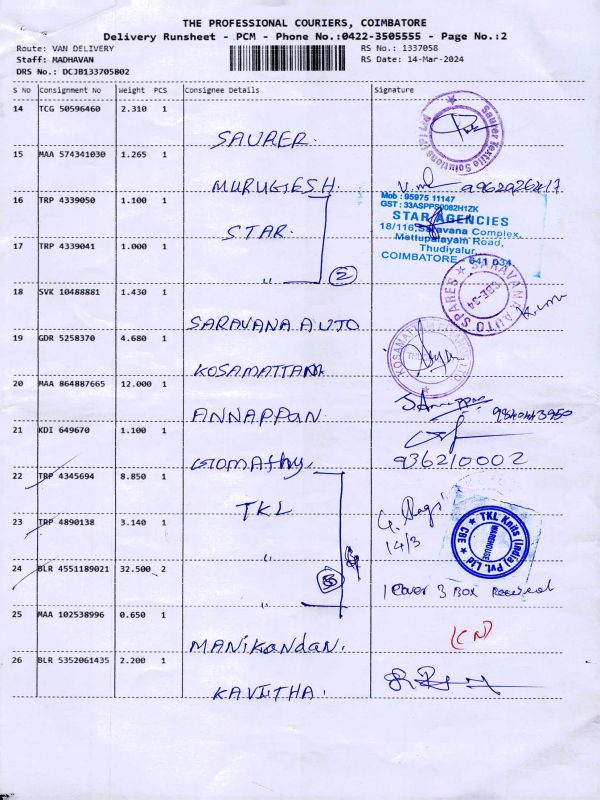 THE PROFESSIONAL COURIERS, COIMBATORE
Delivery Runsheet - PCM - Phone No.:0422-3505555 - Page No.:2
Route: VAN DELIVERY RS No.: 1337058
Staff: MADHAVAN RS Date: 14-Mar-2024
DRS No.: DCJB133705802
S No Consignment No Weight PCS Consignee Details Signature
14 TCG 50596460 2.310 1
SAURER. Saurer Textile Solutions (P) Ltd
15 MAA 574341030 1.265 1
MURUGESH.
16 TRP 4339050 1.100 1
STAR.
Mob : 95975 11147
GST : 33ASPPS0082H1ZK
STAR AGENCIES
18/116, Saravana Complex,
Mettupalayam Road,
Thudiyalur,
COIMBATORE - 641 034
17 TRP 4339041 1.000 1
" 2
18 SVK 10488881 1.430 1
SARAVANA AUTO SARAVANA AUTO SPARES CBE-34
19 GDR 5258370 4.680 1
KOSAMATTAM
20 MAA 864887665 12.000 1
ANNAPPAN.
21 KDI 649670 1.100 1
GOMAthy. 936210002
22 TRP 4345694 8.850 1
TKL
23 TRP 4890138 3.140 1
" 14/3
TKL Knits (India) Pvt. Ltd CBE WAREHOUSE
24 BLR 4551189021 32.500 2
" 1 Cover 3 Box Received
25 MAA 102538996 0.650 1
MANIKANDAN. (CN)
26 BLR 5352061435 2.200 1
KAVITHA.